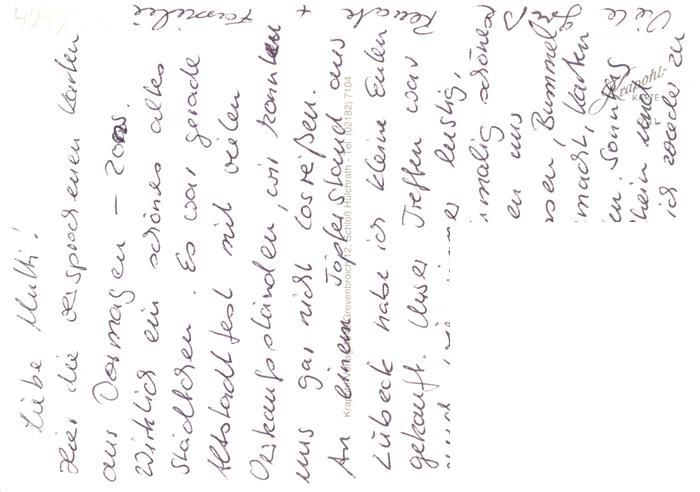 Liebe Mutti!
Hier die versprochenen Karten
aus Dormagen - Zons.
Wirklich ein schönes altes
Städtchen. Es war gerade
Altstadtfest mit vielen
Verkaufsständen, wir konnten
uns gar nicht losreißen.
An einem Töpferstand aus
Lübeck habe ich kleine Eulen
gekauft. Unser Treffen war
lustig,
malig schönes
en uns
sen, Bummel
macht, Karten
en. Sonntag
hein und
ich wurde zu
Viele
Renate
+
Familie
Krapohl-
KARTE
Grevenbroich 12, Schloß Hülchrath - Tel. (02182) 7104